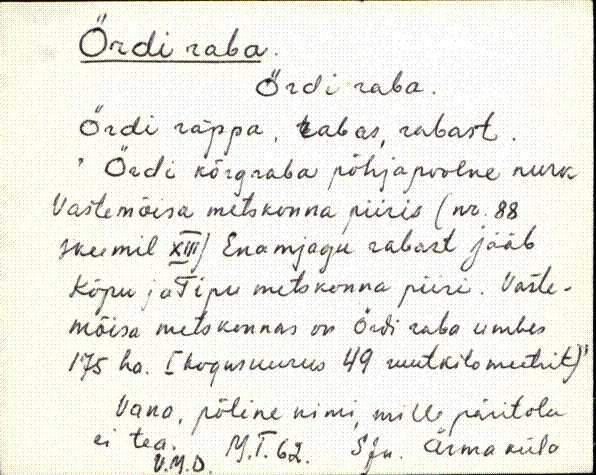 Ördi raba.
Ördi raba.
Ördi rappa, rabas, rabast.
" Ördi kõrgraba põhjapoolne nurk
Vastemõisa metskonna piiris (nr. 88
skeemil XIII) Enamjagu rabast jääb
Kõpu ja Tipu metskonna piiri. Vaste-
mõisa metskonnas on Ördi raba umbes
175 ha. (kogusuurus 49 ruutkilomeetrit)"
Vana, põline nimi, mille päritolu
ei tea.
V.M.D. M.T. 62. Sjn. Ärmaküla